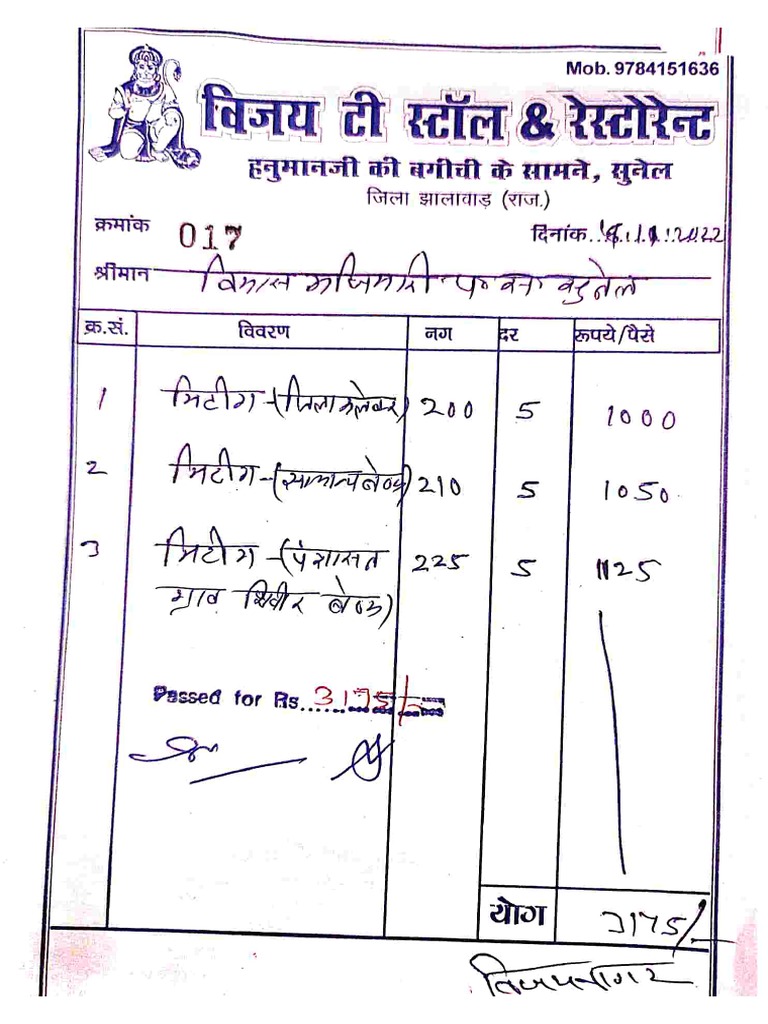 Mob. 9784151636
विजय टी स्टॉल & रेस्टोरेन्ट
हनुमानजी की बगीची के सामने, सुनेल
जिला झालावाड़ (राज.)
क्रमांक 017 दिनांक 2022
श्रीमान विकास अधिकारी सुनेल
क्र.सं. विवरण नग दर रूपये/पैसे
1 मिटींग-(जिला कलेक्टर) 200 5 1000
2 मिटींग-(सामान्य बैठक) 210 5 1050
3 मिटींग- 225 5 1125
शिवीर बैठक)
Passed for Rs. 3175/-
योग 3175/-